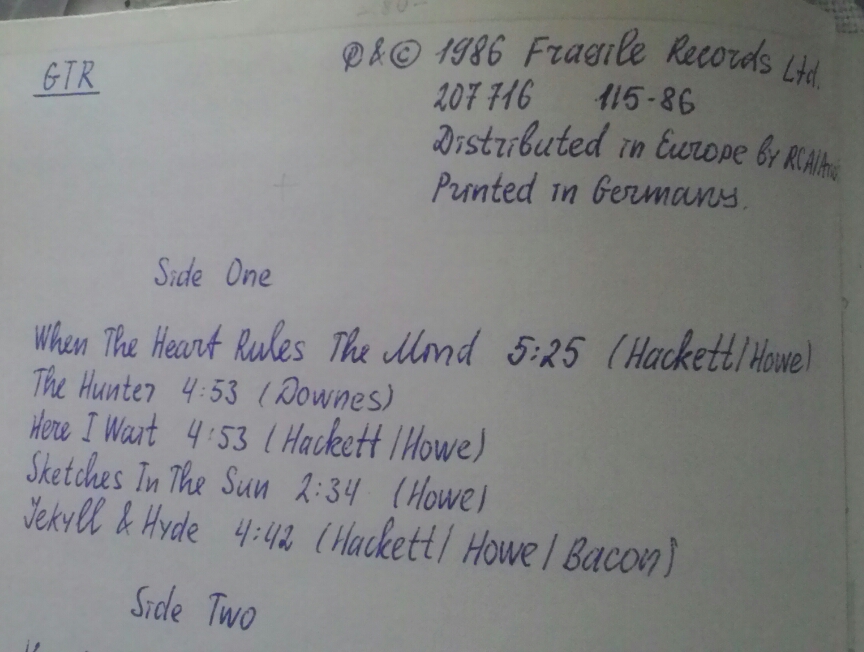 GTR
℗ & © 1986 Fragile Records Ltd.
207 716 115-86
Distributed in Europe by RCA/
Printed in Germany.
Side One
When The Heart Rules The Mind 5:25 (Hackett/Howe)
The Hunter 4:53 (Downes)
Here I Wait 4:53 (Hackett/Howe)
Sketches In The Sun 2:34 (Howe)
Jekyll & Hyde 4:42 (Hackett/Howe/Bacon)
Side Two